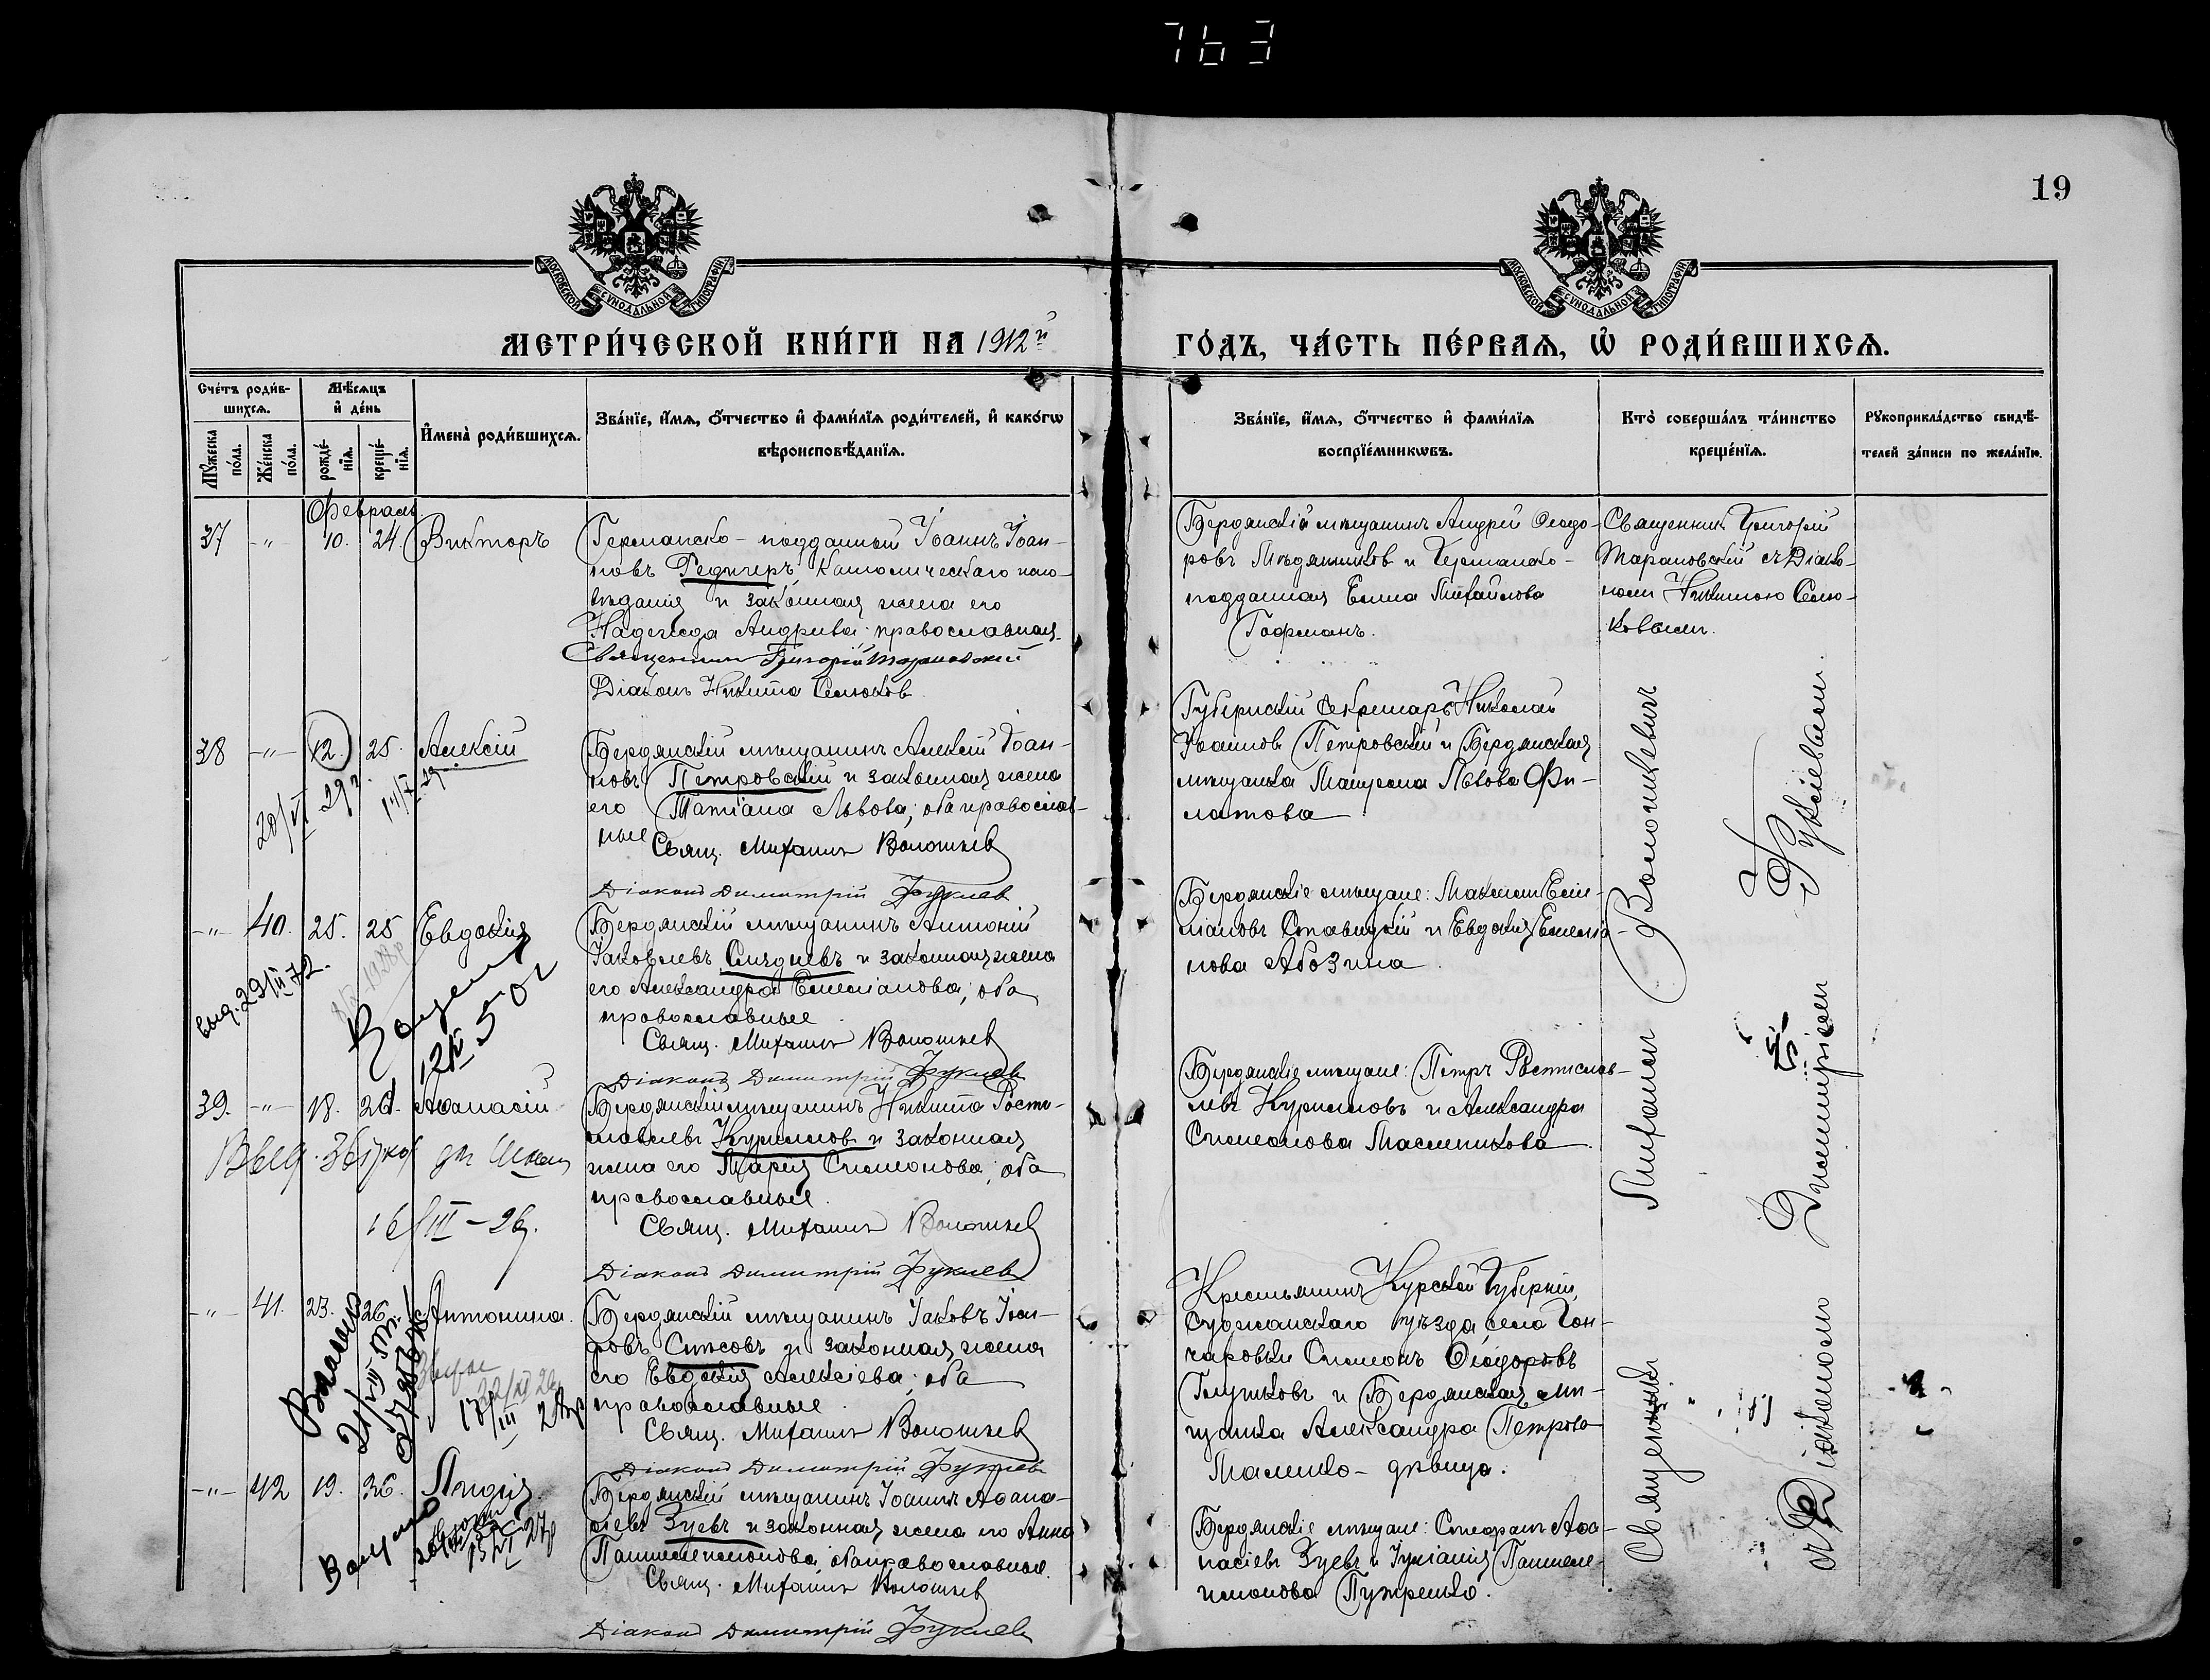 763
19
МОСКОВСКОЙ СѴНОДАЛЬНОЙ ТИПОГРАФІИ
МОСКОВСКОЙ СѴНОДАЛЬНОЙ ТИПОГРАФІИ
МЕТРИ́ЧЕСКОЙ КНИ́ГИ НА 1912й
ГО́ДЪ, ЧА́СТЬ ПЕ́РВАѦ, Ѡ҆ РОДИ́ВШИХСѦ.
Сче́тъ роди́в-
шихсѧ.
Мѣ́сѧцъ
и҆ де́нь
Мꙋ́жеска
по́ла.
Же́нска
по́ла.
рожде́-
нїѧ.
креще́-
нїѧ.
И҆мена̀ роди́вшихсѧ.
Зва́нїе, и҆́мѧ, ѻ҆́тчество и҆ фами́лїѧ роди́телей, и҆ како́гѡ
вѣроисповѣ́данїѧ.
Зва́нїе, и҆́мѧ, ѻ҆́тчество и҆ фами́лїѧ
воспрїе́мникѡвъ.
Кто̀ соверша́лъ та́инство
креще́нїѧ.
Рꙋкоприкла́дство свидѣ́-
телей за́писи по жела́нїю.
Февраль
37 -"- 10. 24. Викторъ
Германско-подданный Іоаннъ Іоан-
новъ Редигеръ, католическаго испо-
вѣданія и законная жена его
Надежда Андреева православная.
Священникъ Григорій Тарановскій
Діаконъ Никита Селюков
Бердянскій мѣщанинъ Андрей Ѳеодо-
ровъ Мѣдяников и Германско-
подданная Емма Михайлова
Гофманъ.
Священник Григорій
Тарановскій съ Діако-
номъ Никитою Селю-
ковымъ.
38 -"- 12. 25. Алексій
20/VI 29г.
Бердянскій мѣщанинъ Алексій Іоан-
новъ Петровскій и законная жена
его Татіана Львова; оба православ-
ные
Свящ. Михаилъ Волошкев
Діаконъ Димитрій Гукиев
Губернскій Секретарь Николай
Іоанновъ Петровскій и Бердянская
мѣщанка Львова Фи-
латова
-"- 40. 25. 25 Евдокія
выд. 29/III 72.
Бердянскій мѣщанинъ Антоній
Іаковлевъ и законная жена
его Александра Емеліанова; оба
православные
Свящ. Михаилъ Волошкев
Діаконъ Димитрій
Бердянскіе мѣщане: Максим Еми-
ліановъ Ставицкій и Евдокія Емеліа-
нова Абозина.
39. -"- 18. 26. Аѳанасій
Выд.
16/III-26г.
Бердянскій мѣщанинъ Никита Рости-
славлевъ Курилов и законная
жена его Марія Симеонова; оба
православные.
Свящ. Михаилъ Волошкев
Діаконъ Димитрій
Бердянскіе мѣщане: Петръ Ростислав-
левъ Куриловъ и Александра
Симеонова Масленикова.
-"- 41. 23. 26. Антонина.
Бердянскій мѣщанинъ Іаковъ Іоси-
фовъ и законная жена
его Евдокія Алексіева; оба
православные.
Свящ. Михаилъ Волошкев
Діаконъ Димитрій
Крестьянинъ Курской Губерніи,
Суджанскаго уѣзда села Гон-
чаровки Симеонъ Ѳеодоровъ
Глушковъ и Бердянская мѣ-
щанка Александра Петрова
Маленко - дѣвица.
-"- 42 19. 26. Лидія.
Бердянскій мѣщанинъ Іоаннъ Аѳана-
сіевъ Зуевъ и законная жена его Анна
Пантелеимонова; оба православные.
Свящ. Михаилъ Волошкев
Діаконъ Димитрій
Бердянскіе мѣщане: Стефанъ Аѳа-
насіевъ Зуевъ и Іуліанія Пантеле-
имонова
Священник Михаил
съ Діакономъ Димитріемъ